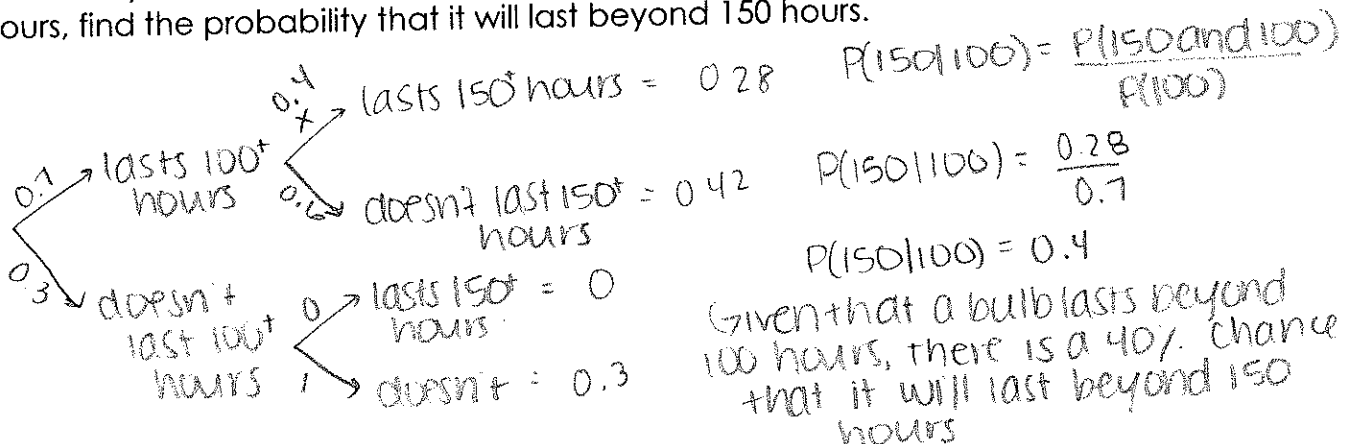 ours, find the probability that it will last beyond 150 hours.
0.7
lasts 100+
hours
0.4
x
lasts 150+ hours = 0 28
0.6
doesn't last 150+ = 0 42
hours
0.3
doesn't
last 100+
hours
0
lasts 150+ = 0
hours
1
doesn't = 0.3
P(150|100) = P(150 and 100)
P(100)
P(150|100) = 0.28
0.7
P(150|100) = 0.4
Given that a bulb lasts beyond
100 hours, there is a 40% chance
that it will last beyond 150
hours